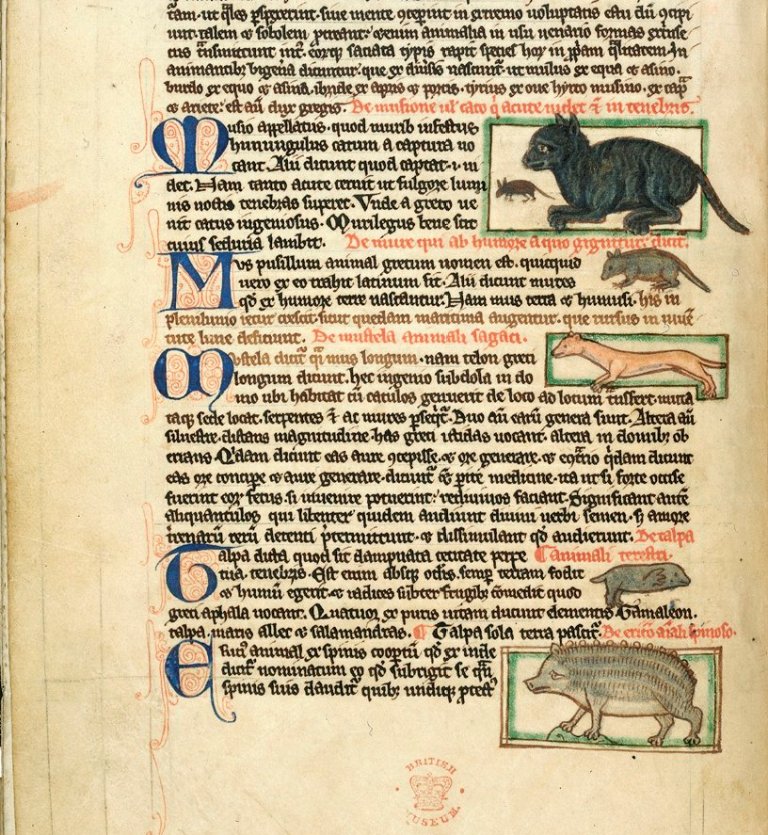 tam. ut q̄les p̱spexerint. siue mente ꝯcepiunt in extremo uoluptatis estu dū ꝯcipi
iunt. talem et sobolem p̱creant. Etenim animalia in usu uenerio formas extrinse
cus transmittunt int᷑. eorumq; saciata typis rapit species hoꝝ in pp̱am q̄litatem. In
animantib; bigena dicuntur. que ex diuersis nascunt᷑. ut mulus ex equa et asino.
burdo ex equo et asina. ibride ex apris et porcis. tyrius ex oue hyrco musino. ex cap̃
et ariete. est aū dux gregis. De musione uel cato q̇ acute uidet ⁊ in tenebris.
Musio appellatus. quod murib; infestus
hunc uulgus catum a captura uo
cant. Alii dicunt quod captat .i. ui
det. Nam tanto acute cernit ut fulgore lumi
nis noctis tenebras superet. Vnde a greco ue
nit catus ingeniosus. Murilegus bene scit
cuius lambit. De mure qui ab humore a quo gignitur. dicit᷑.
Mus pusillum animal grecum nomen est. quicquid
uero ex eo trahit latinum fit. Alii dicunt mures
qd̓ ex humore terre nascantur. Nam mus terra et humus. his in
plenilunio iecur crescit. sicut quedam maritima augentur. que rursus in minu
tute lune deficiunt. De mustela animali sagaci.
Mustela dicit᷑ q̄i mus longum. nam telon greci
longum dicunt. hec ingenio subdola in do
mo ubi habitat cū catulos genuerit de loco ad locum transfert. muta
taq; sede locat. serpentes ⁊ ac mures p̱seqit᷑. Duo aū earū genera sunt. Altera aū
siluestre. distans magnitudine. has greci ictidas uocant. altera in domib; ob
errans. Q̄dam dicunt eas aure ꝯcepisse. et ore generare. et ecōtrario q̇dam dicunt
eas ore concipe et aure generare. dicunt᷑ et p̱ite medicine. ita ut si forte occise
fuerint eorum fetus. si inuenire potuerint. rediuiuos faciant. Significant autē
aliquantulos qui libenter quidem audiunt diuini uerbi semen. si amore
terrenarū rerū detenti p̱termittunt. et dissimulant qd̓ audierunt. De talpa
animali terestri.
Talpa dicta quod sit dampnata cecitate perpe
tua tenebris. Est enim absq; oc̄lis. semp̱ terram fodit
et humū egerit. et radices subter frugib; comedit quod
greci aphala uocant. Quatuor ex puris uitam ducunt elementis Gamaleon.
talpa. maris allec et salamandras. Talpa sola terra pascit᷑. De ericio aīali spinoso.
Ericius animal ex spinis coop̱tū qd̓ ex inde
dicit᷑ nominatum eo qd̓ subrigit se q̄n
spinis suis claudit᷑ quib; undiq; p̱tect᷑
BRITISH
MUSEUM